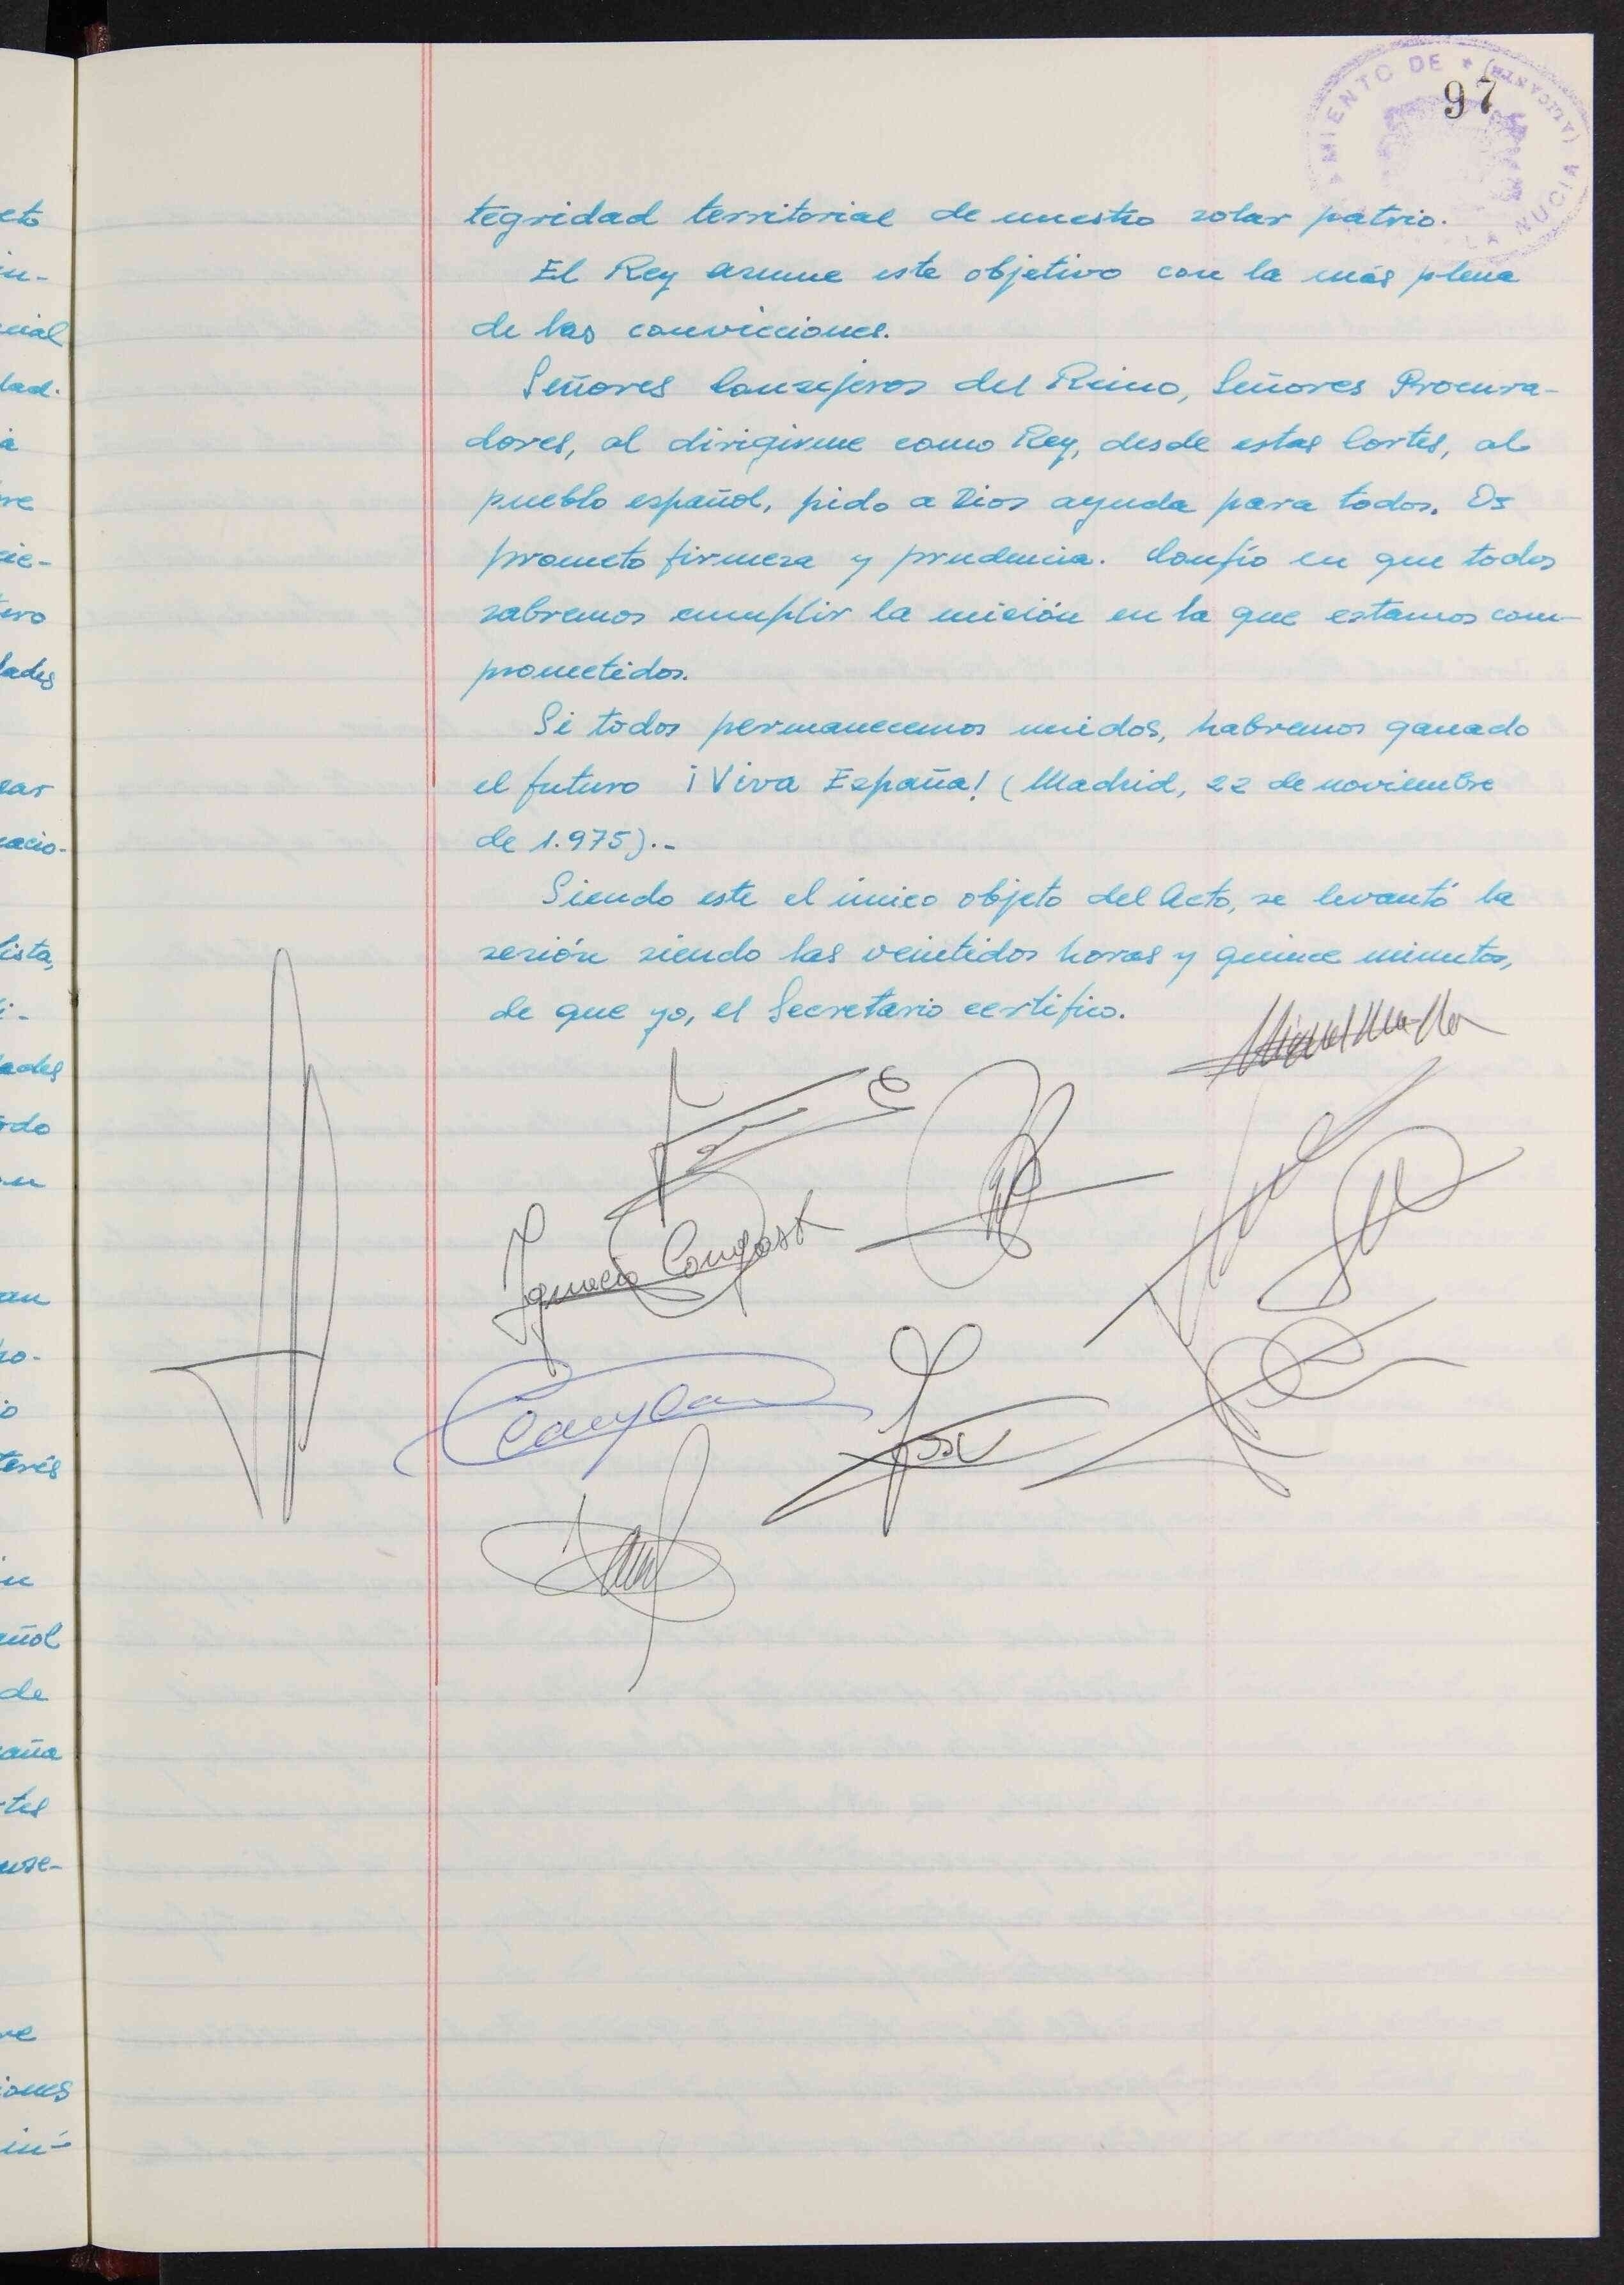 97
AMIENTO DE * LA NUCIA (ALICANTE)
tegridad territorial de nuestro solar patrio.
El Rey asume este objetivo con la más plena
de las convicciones.
Señores Consejeros del Reino, Señores Procura-
dores, al dirigirme como Rey, desde estas Cortes, al
pueblo español, pido a Dios ayuda para todos. Os
prometo firmeza y prudencia. Confío en que todos
sabremos cumplir la misión en la que estamos com-
prometidos.
Si todos permanecemos unidos, habremos ganado
el futuro ¡Viva España! (Madrid, 22 de noviembre
de 1.975).-
Siendo este el único objeto del Acto, se levantó la
sesión siendo las veintidos horas y quince minutos,
de que yo, el Secretario certifico.
Ignacio
eto
in-
lad.
a
ie-
lades
acio-
ista,
ades
an
io
terés
añol
de
aña
tes
iones
in-